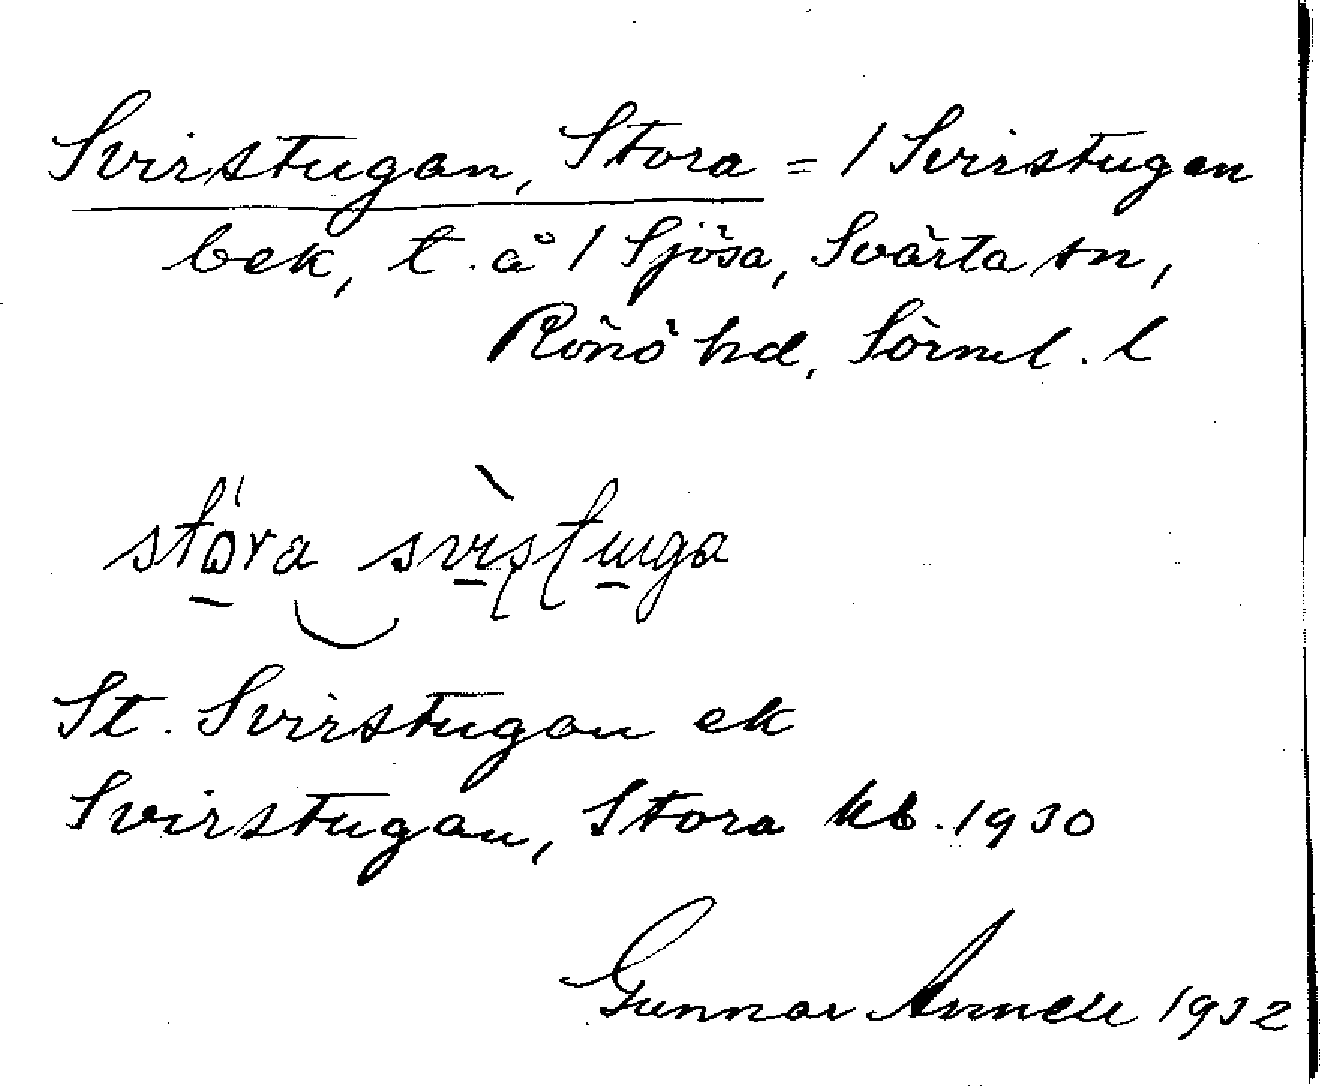 Svirstugan, Stora = / Svirstugan
bek, t. å / Sjösa, Svärta sn,
Rönö hd, Sörml. l
stora svirstuga
St. Svirstugan ek
Svirstugan, Stora kb. 1930
Gunnar Annell 1932